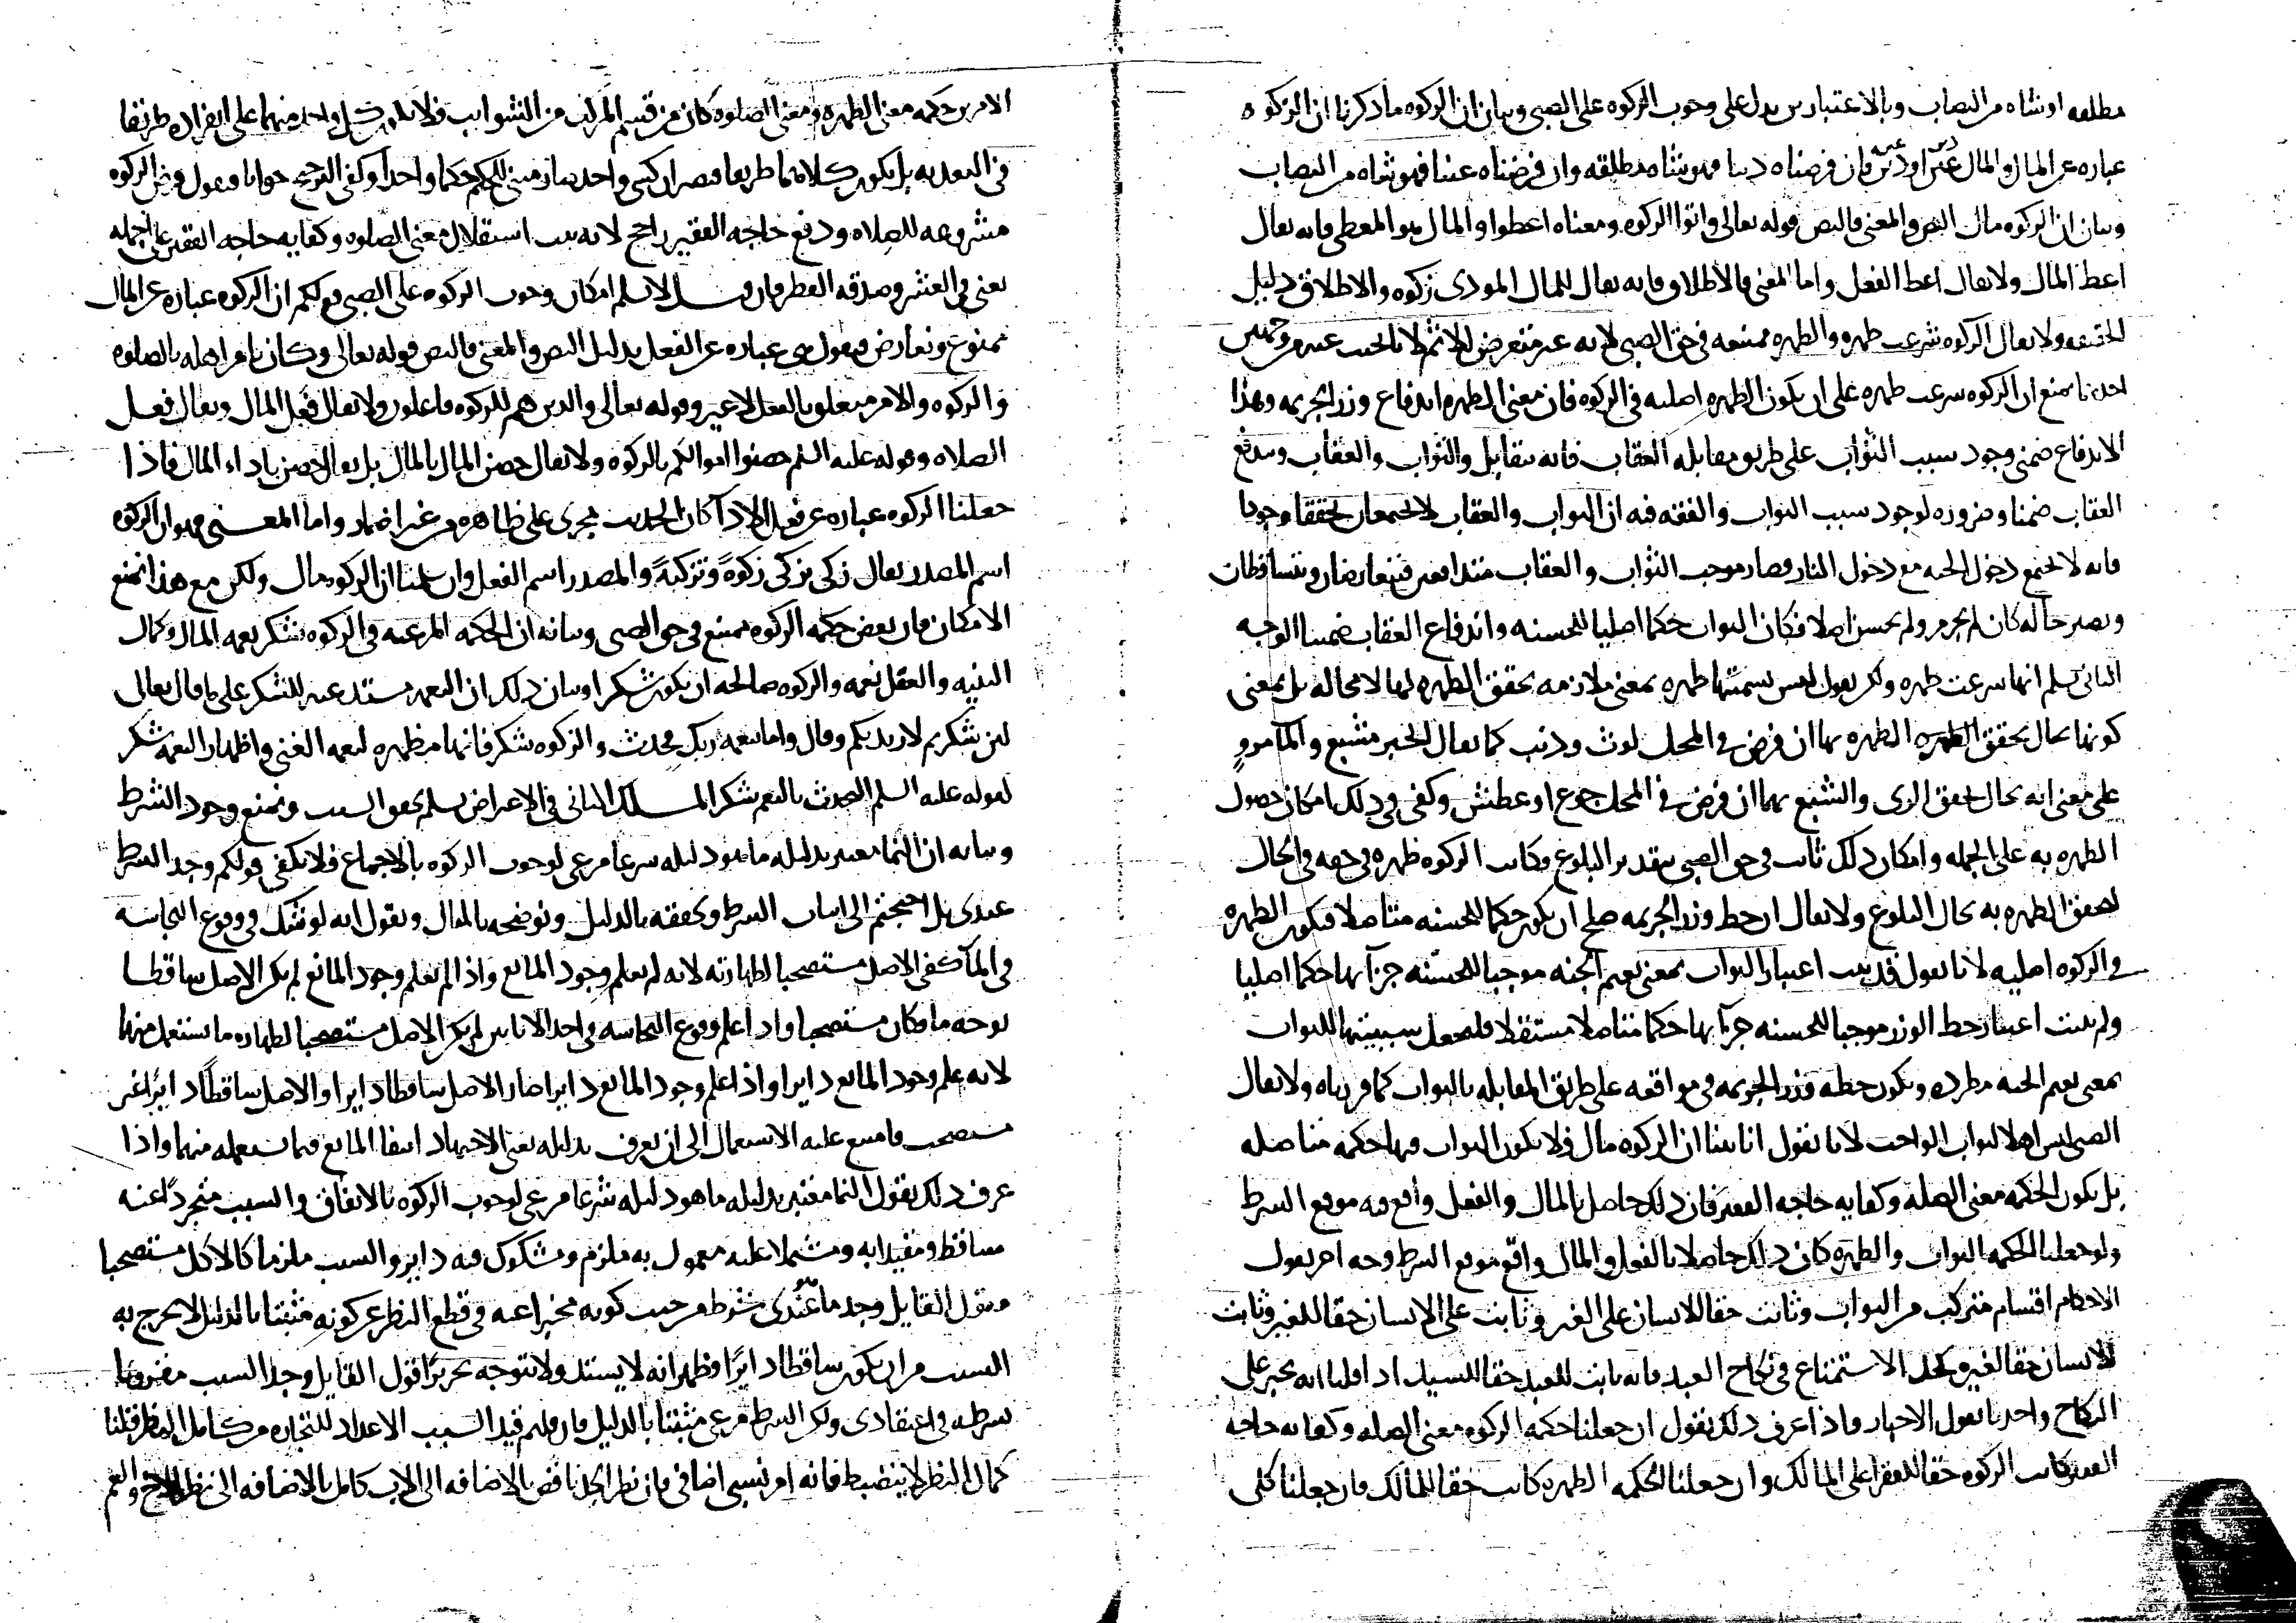 مطلقه او شاه من النصاب وبالاعتبارين يدل على وجوب الزكوه على الصبي وبيان ان الزكوه ما ذكرنا ان الزكوه
عباره عن المال والمال عين او دين فان فرضناه دينا فهو شاه مطلقه وان فرضناه عينا فهو شاه من النصاب
وبيان ان الزكوه مال النص والمعنى فالنص قوله تعالى واتوا الزكوه ومعناه اعطوا والمال هو المعطى فانه يقال
اعط المال ولا يقال اعط الفعل واما المعنى فالاطلاق فانه يقال للمال المودى زكوه والاطلاق دليل
الحقيقه ولا يقال الزكوه شرعت طهره والطهره ممتنعه في حق الصبي لانه غير متعرض للاثم لانا نجيب عنه من وجهين
احدنا نمنع ان الزكوه شرعت طهره على ان يكون الطهره اصليه في الزكوه فان معنى الطهره اندفاع وزر الجريمه وهذا
الاندفاع ضمني وجود سبب الثواب على طريق مقابله العقاب فانه يتقابل والثواب والعقاب ويندفع
العقاب ضمنا وضروره لوجود سبب الثواب والفقه فيه ان الثواب والعقاب لا يجتمعان تحققا وجودا
فانه لا يجتمع دخول الجنه مع دخول النار فصار موجب الثواب والعقاب متدافعين فيتعارضان ويتساقطان
ويصير حاله كان لم يجرم ولم يحسن اصلا فكان الثواب حكما اصليا للحسنه واندفاع العقاب ضمنيا الوجه
الثاني نسلم انها شرعت طهره ولكن نقول ليس تسميتها طهره بمعنى ملازمه تحقق الطهره لها لا محاله بل بمعنى
كونها بحال تحقق الطهره الطهره بها ان فرض في المحل لوث وذنب كما يقال الخبز مشبع والما مرو
على معنى انه بحال تحقق الري والشبع بهما ان فرض في المحل جوع او عطش وكفى في ذلك امكان حصول
الطهره به على الجمله وامكان ذلك ثابت في حق الصبي بتقدير البلوغ وكانت الزكوه طهره في حقه في الحال
لتحقق الطهره به بحال البلوغ ولا يقال ان حط وزر الجريمه صلح ان يكون حكما للحسنه متاصلا فيكون الطهره
في الزكوه اصليه لانا نقول قد ثبت اعتبار الثواب بمعنى نعيم الجنه موجبا للحسنه جزا بها حكما اصليا
ولم يثبت اعتبار حط الوزر موجبا للحسنه جزا بها حكما متاصلا مستقلا فلنجعل سببيتها للثواب
بمعنى نعيم الجنه مطرده ويكون حطه وزر الجريمه في مواقعه على طريق المقابله بالثواب كما قررناه ولا يقال
الصبي ليس اهلا لثواب الواجب لانا نقول انا بينا ان الزكوه مال فلا يكون الثواب فيها حكمه متاصله
بل يكون الحكمه معنى الصله وكفايه حاجه الفقير فان ذلك حاصل بالمال والفعل واقع فيه موقع الشرط
ولو جعلنا الحكمه الثواب والطهره كان ذلك حاصلا بالفعل والمال واقع موقع الشرط وجه اخر نقول
الاحكام اقسام متركب من الثواب وثابت حقا للانسان على الغير وثابت على الانسان حقا للغير وثابت
للانسان حقا لغيره كحل الاستمتاع في نكاح العبد فانه ثابت للعبد حقا للسيد اذ قلنا انه يجبر على
النكاح واحدنا نقول الاجبار واذا عرف ذلك نقول ان جعلنا حكمه الزكوه معنى الصله وكفايه حاجه
الفقير كانت الزكوه حقا للفقرا على المالك وان جعلنا الحكمه الطهره كانت حقا للمالك فان جعلنا كلى
الامرين حكمه معنى الطهره ومعنى الصلوه كان من قسم المركب من الشوايب فلا يكون كل واحد منهما على انفراده طريقا
في التعديه بل يكون كلاهما طريقا فيصيران كشي واحد يبنى الحكم حكما واحدا وكفى الترجيح جوابا فنقول فرض الزكوه
مشروعه للصلاه ودفع حاجه الفقير راجح لانه ثبت استقلال معنى الصلوه وكفايه حاجه الفقير على الجمله
يعني في العشر وصدقه الفطر فان قيل لا نسلم امكان وجوب الزكوه على الصبي قولكم ان الزكوه عباره عن المال
ممنوع ونعارض فنقول هي عباره عن الفعل بدليل النص والمعنى فالنص قوله تعالى وكان يامر اهله بالصلوه
والزكوه والامر يتعلق بالفعل لا غير وقوله تعالى والذين هم للزكوه فاعلون ولا يقال فعل المال ويقال فعل
الصلاه وقوله عليه السلم حصنوا اموالكم بالزكوه ولا يقال حصن المال بالمال بل يقال حصن باداء المال فاذا
جعلنا الزكوه عباره عن فعل الادا كان الحديث مجرى على ظاهره من غير اضمار واما المعنى فهو ان الزكوه
اسم المصدر يقال زكى يزكى زكوه وتزكيه والمصدر اسم الفعل وان سلمنا ان الزكوه مال ولكن مع هذا نمنع
الامكان فان بعض حكمه الزكوه ممتنع في حق الصبي وبيانه ان الحكمه المرعيه في الزكوه شكر نعمه المال وكمال
البنيه والعقل نعمه والزكوه صالحه ان يكون شكرا وبيان ذلك ان النعمه مستدعيه للشكر على ما قال تعالى
لئن شكرتم لازيدنكم وقال واما بنعمه ربك فحدث والزكوه شكر فانها مظهره لنعمه الغنى واظهار النعمه شكر
لقوله عليه السلم التحدث بالنعم شكر المسلك الثاني في الاعتراض نسلم تحقق السبب ونمنع وجود الشرط
وبيانه ان النما معتبر بدليله ما هو دليله شرعا مرعي لوجوب الزكوه بالاجماع فلا يكفي قولكم وجد الشرط
عندي بل احتجتم الى اثبات الشرط وتحققه بالدليل ونوضحه بالمثال ونقول انه لو شك في وقوع النجاسه
في الما كفى الاصل مستصحبا لطهارته لانه لم يعلم وجود المانع واذا لم نعلم وجود المانع لم يكن الاصل ساقطا
بوجه ما فكان مستصحبا واذا علم وقوع النجاسه في احد الانائين لم يكن الاصل مستصحبا لطهاره ما يستعمل منها
لانه علم وجود المانع دايرا واذا علم وجود المانع دايرا صار الاصل ساقطا دايرا والاصل ساقطا دايرا غير
مستصحب فامتنع عليه الاستعمال الى ان يعرف بدليله يعني الاجتهاد انتفا المانع فيما يستعمله منهما واذا
عرف ذلك نقول النما معتبر بدليله ما هو دليله شرعا مرعي لوجوب الزكوه بالاتفاق والسبب متجردا عنه
ساقط ومقيدا به ومشتملا عليه معمول به ملزم ومشكوك فيه داير والسبب ملزما كالاكل مستصحبا
وبقول القايل وجد ما عندي شرط من حيث كونه مخبرا عنه في قطع النظر عن كونه مثبتا بالدليل لا يخرج به
السبب من ان يكون ساقطا دايرا وظهر انه لا يستند ولا يتوجه تحريرا قول القايل وجد السبب مقرونا
بشرطه في اعتقادي ولكن الشرط مرعي مثبتا بالدليل فان قلتم قيد السبب الاعداد للتجاره من كامل النظر قلنا
كمال النظر لا ينضبط فانه امر نسبي اضافي فان نظر الجد ناقص بالاضافه الى الاب كامل بالاضافه الى نظر الاخ والعم